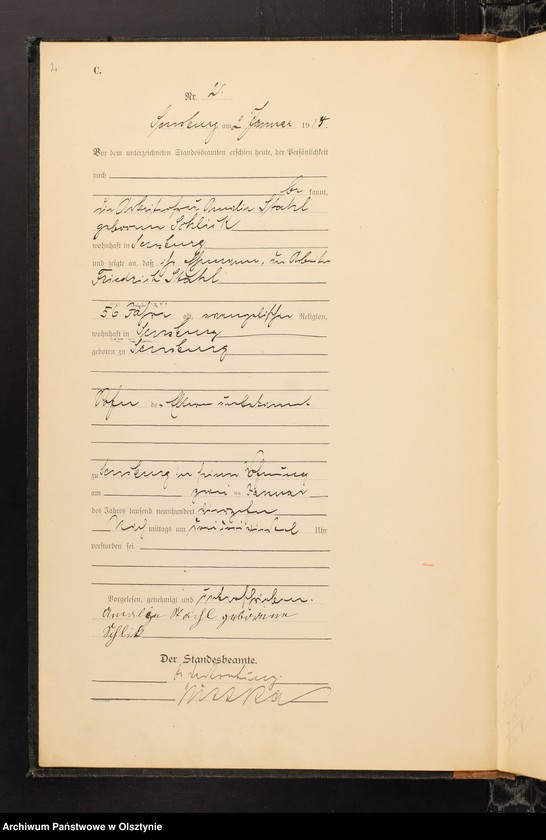 2
C.
Nr. 2.
Sensburg am 2 Januar 19 14.
Vor dem unterzeichneten Standesbeamten erschien heute, der Persönlichkeit
nach
be kannt,
die Arbeiterfrau Amalie Stahl
geborene Schlick
wohnhaft in Sensburg
und zeigte an, daß ihr Ehemann, der Arbeiter
Friedrich Stahl
56 Jahre alt, evangelischer Religion,
wohnhaft in Sensburg
geboren zu Sensburg
Sohn der Eltern unbekannt.
zu Sensburg in seiner Wohnung
am zwei ten Januar
des Jahres tausend neunhundert vierzehn
Nach mittags um Uhr
verstorben sei.
Vorgelesen, genehmigt und unterschrieben.
Amalie Stahl geborene
Schlick
Der Standesbeamte.
In Vertretung.
Archiwum Państwowe w Olsztynie